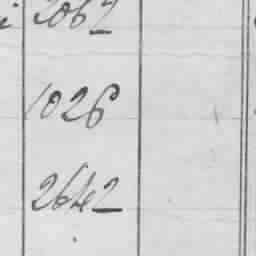 i 2062
1026
2642